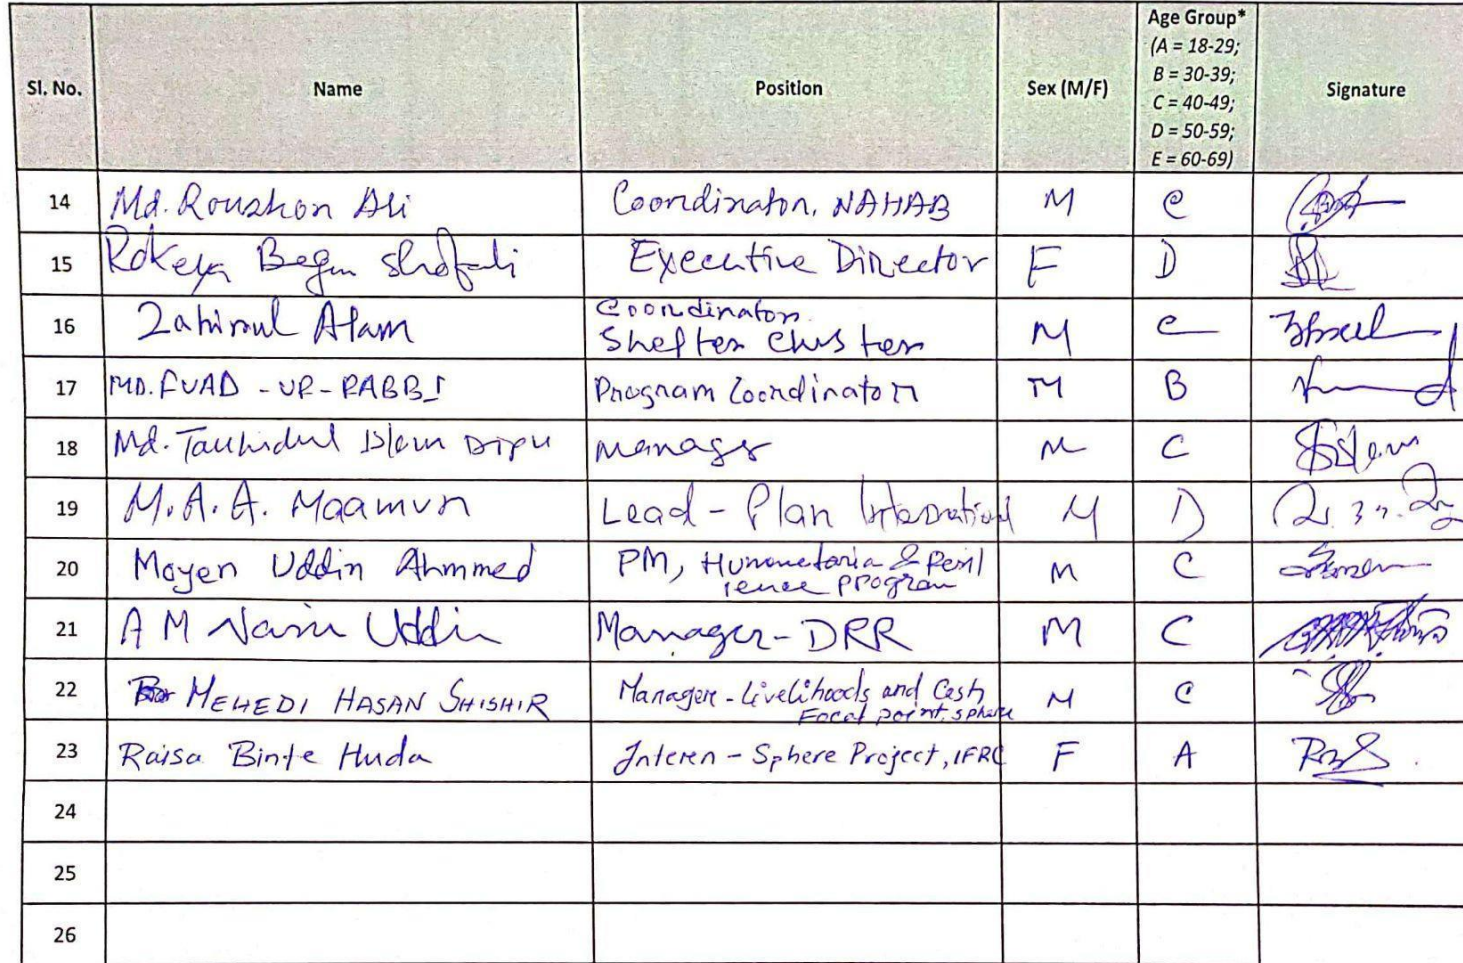 Sl. No. Name Position Sex (M/F) Age Group* Signature
(A = 18-29;
B = 30-39;
C = 40-49;
D = 50-59;
E = 60-69)
14 Md. Roushon Ali Coordinator, NAHAB M C
15 Rokeya Begum Shefali Executive Director F D
16 Zahirul Alam Coordinator M C
Shelter Cluster
17 MD. FUAD-UR-RABBI Program Coordinator M B
18 Md. Tauhidul Islam Dipu Manager M C
19 M.A.A. Maamun Lead - Plan International M D
20 Moyen Uddin Ahmmed PM, Humanetaria & Resil M C
ience program
21 A M Nasir Uddin Manager - DRR M C
22 MEHEDI HASAN SHISHIR Manager - Livelihoods and Cash M C
Focal point, sphere
23 Raisa Binte Huda Interen - Sphere Project, IFRC F A
24
25
26